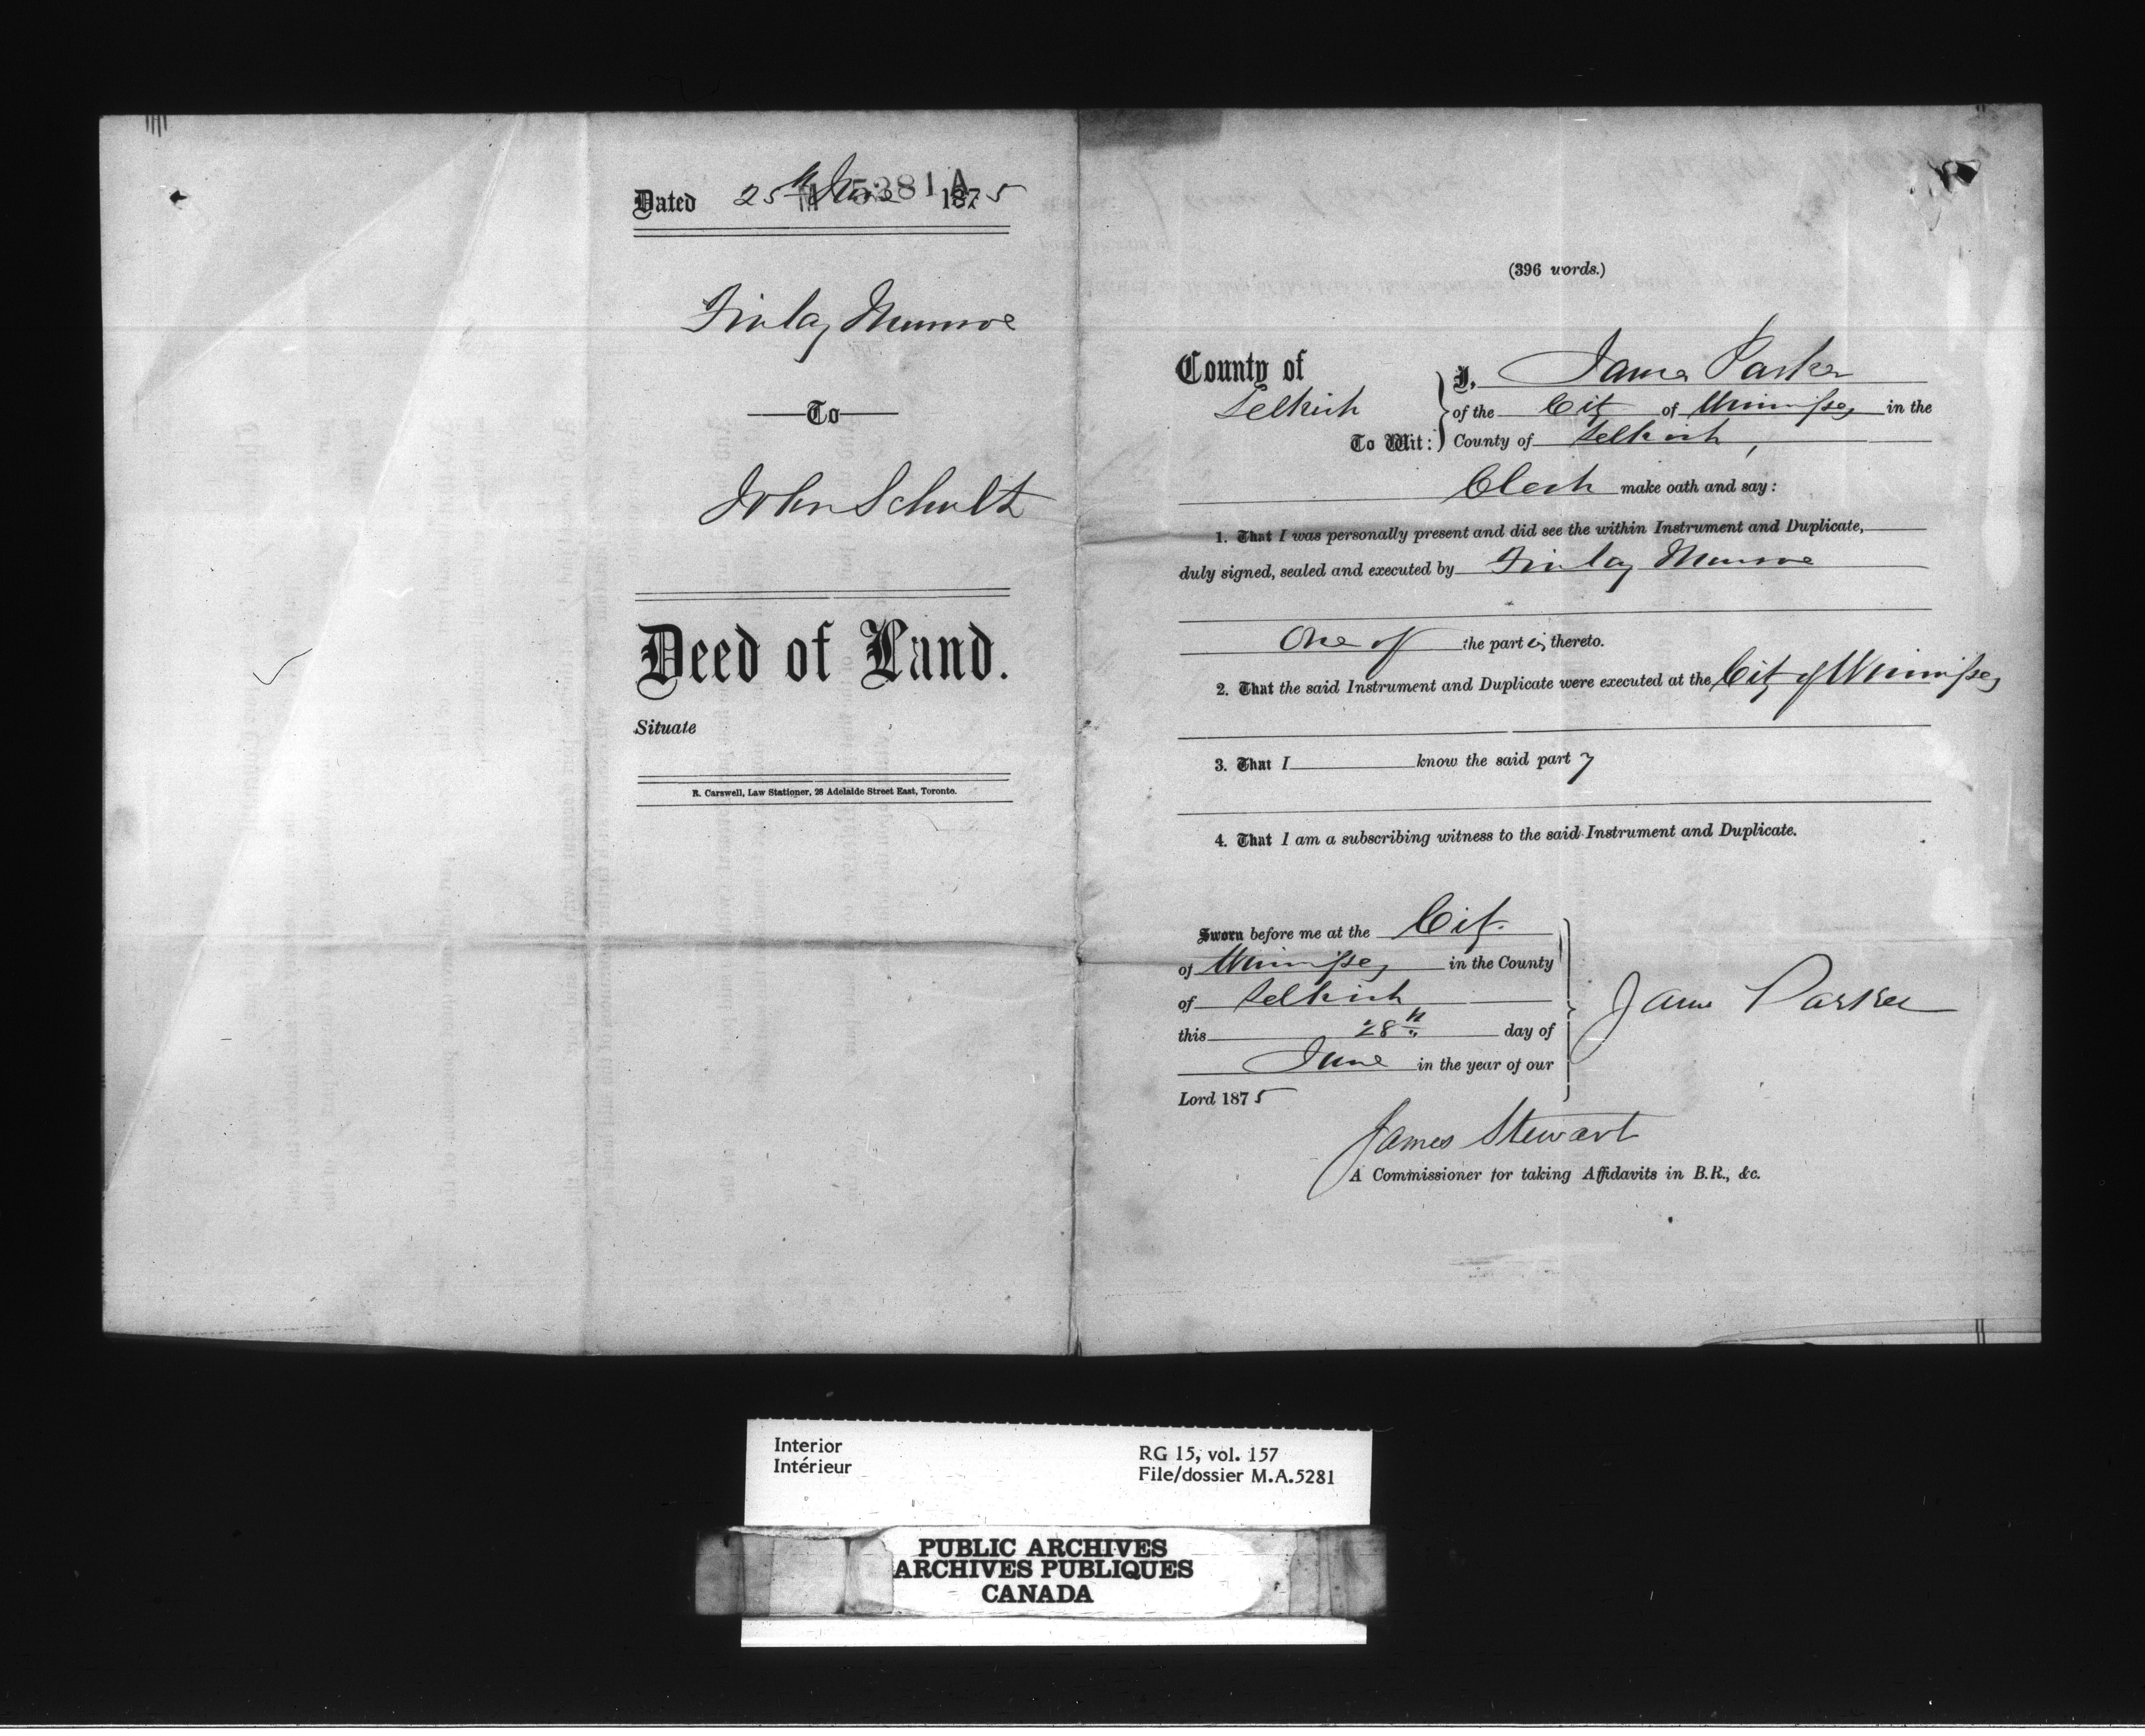 Dated 25th June 1875
M 5281 A
Finlay Munroe
To
John Schultz
Deed of Land.
Situate
R. Carswell, Law Stationer, 28 Adelaide Street East, Toronto.
(396 words.)
County of
Selkirk
To Wit:
I, James Parker
of the City of Winnipeg in the
County of Selkirk,
Clerk make oath and say:
1. That I was personally present and did see the within Instrument and Duplicate,
duly signed, sealed and executed by Finlay Munroe
One of the parties thereto.
2. That the said Instrument and Duplicate were executed at the City of Winnipeg
3. That I know the said party
4. That I am a subscribing witness to the said Instrument and Duplicate.
Sworn before me at the City
of Winnipeg in the County
of Selkirk
this 28th day of
June in the year of our
Lord 1875
James Parker
James Stewart
A Commissioner for taking Affidavits in B.R., &c.
Interior
Intérieur
RG 15, vol. 157
File/dossier M.A.5281
PUBLIC ARCHIVES
ARCHIVES PUBLIQUES
CANADA